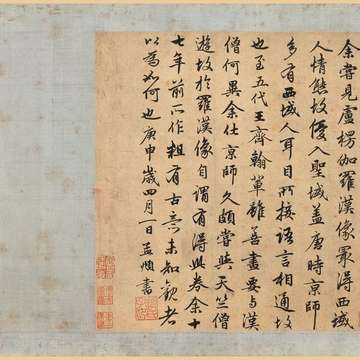 余嘗見盧楞伽羅漢像冣得西域
人情態故優入聖域蓋唐時京師
多有西域人耳目所接語言相通故
也至五代王齊翰輩雖善畫要与漢
僧何異余仕京師久頗嘗與天竺僧
遊故於羅漢像自謂有得此卷余十
七年前所作粗有古意未知觀者
以為如何也庚申歲四月一日孟頫書